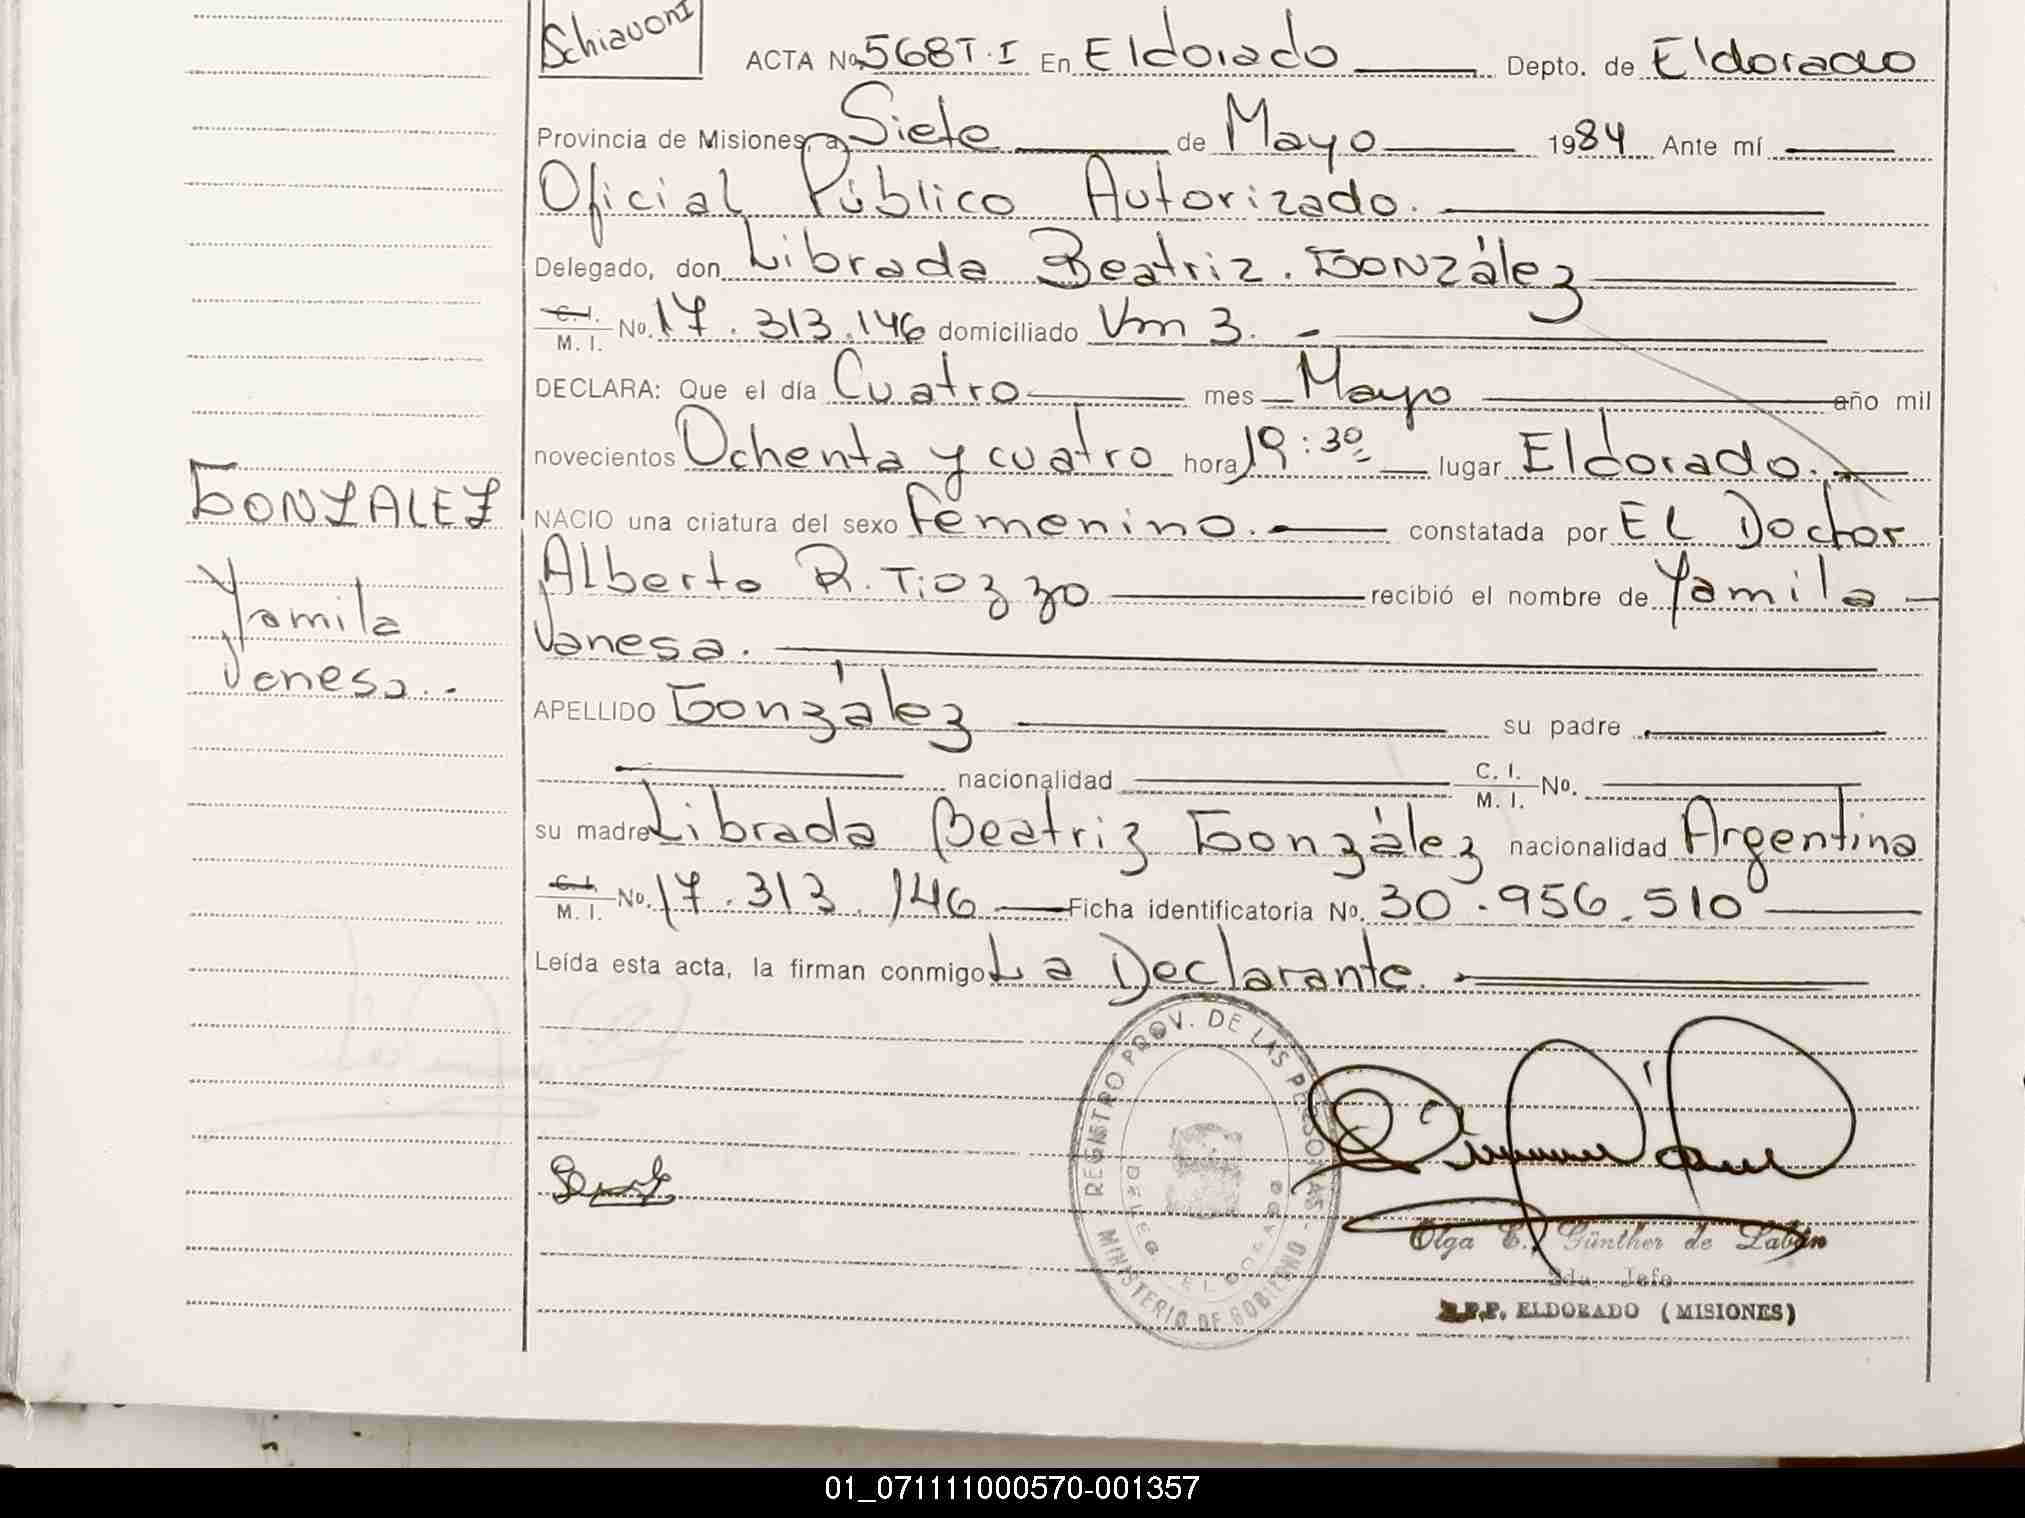 Schiavoni
ACTA No. 568 T. I En Eldorado Depto. de Eldorado
Provincia de Misiones, a Siete de Mayo 1984 Ante mí
Oficial Público Autorizado.
Delegado, don Librada Beatriz. González
C. I. M. I. No. 17.313.146 domiciliado Km 3. -
DECLARA: Que el día Cuatro mes Mayo año mil
novecientos Ochenta y cuatro hora 19:30 lugar Eldorado.
GONZALEZ
NACIO una criatura del sexo Femenino. constatada por El Doctor
Yamila
Alberto R. Tiozzo recibió el nombre de Yamila
Vanesa.-
Vanesa.
APELLIDO González su padre
nacionalidad C. I. M. I. No.
su madre Librada Beatriz González nacionalidad Argentina
C. I. M. I. No. 17.313.146 Ficha identificatoria No. 30.956.510
Leída esta acta, la firman conmigo La Declarante.
REGISTRO PROV. DE LAS PERSONAS
DELEG. ELDORADO
MINISTERIO DE GOBIERNO
Olga E. Günther de Labán
2da. Jefe
R.P.P. ELDORADO (MISIONES)
01_071111000570-001357